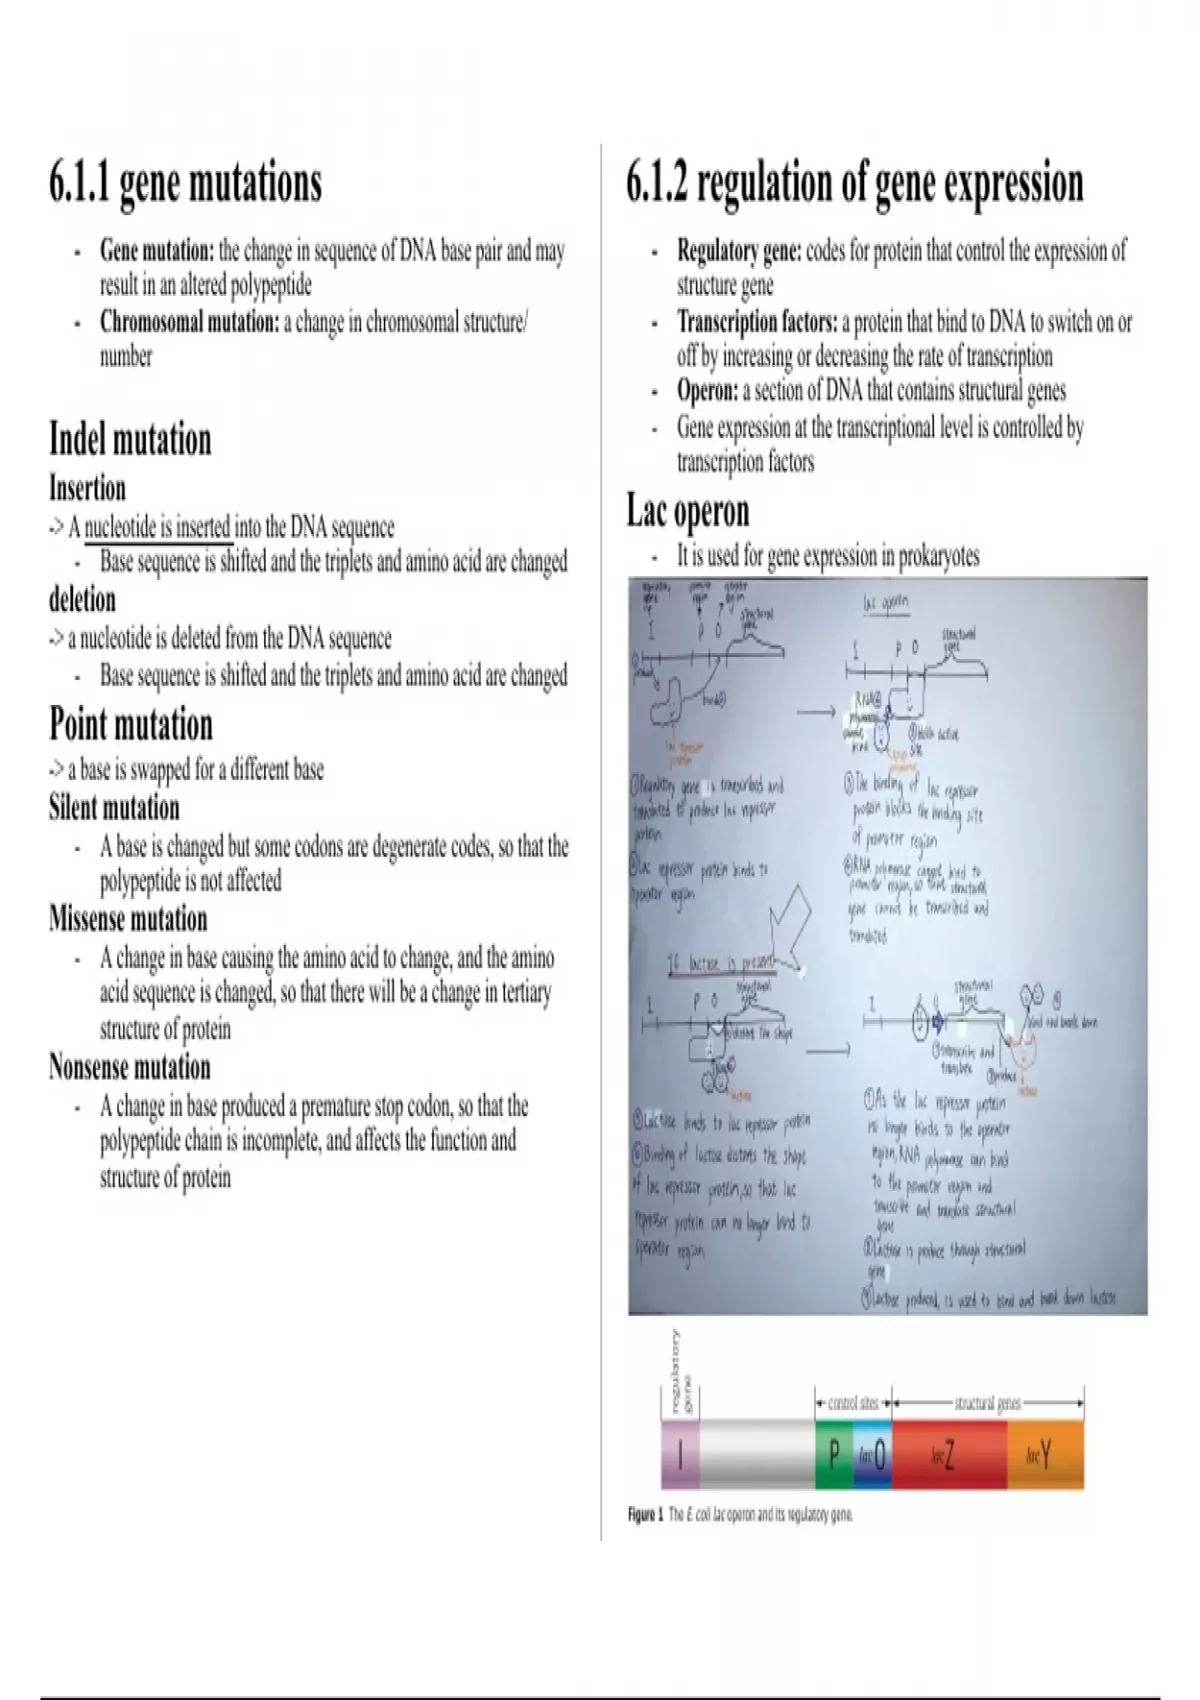 6.1.1 gene mutations
- Gene mutation: the change in sequence of DNA base pair and may
result in an altered polypeptide
- Chromosomal mutation: a change in chromosomal structure/
number
Indel mutation
Insertion
-> A nucleotide is inserted into the DNA sequence
- Base sequence is shifted and the triplets and amino acid are changed
deletion
-> a nucleotide is deleted from the DNA sequence
- Base sequence is shifted and the triplets and amino acid are changed
Point mutation
-> a base is swapped for a different base
Silent mutation
- A base is changed but some codons are degenerate codes, so that the
polypeptide is not affected
Missense mutation
- A change in base causing the amino acid to change, and the amino
acid sequence is changed, so that there will be a change in tertiary
structure of protein
Nonsense mutation
- A change in base produced a premature stop codon, so that the
polypeptide chain is incomplete, and affects the function and
structure of protein
6.1.2 regulation of gene expression
- Regulatory gene: codes for protein that control the expression of
structure gene
- Transcription factors: a protein that bind to DNA to switch on or
off by increasing or decreasing the rate of transcription
- Operon: a section of DNA that contains structural genes
- Gene expression at the transcriptional level is controlled by
transcription factors
Lac operon
- It is used for gene expression in prokaryotes
regulatory
gene
promoter
region
operator
region
structural
gene
I P O
lac repressor
protein
① Regulatory gene is transcribed and
translated to produce lac repressor
protein
② Lac repressor protein binds to
operator region
lac operon
structural
gene
I P O
RNA
polymerase
cannot
bind
③ blocks active
site
③ The binding of lac repressor
protein blocks the binding site
of promoter region
④ RNA polymerase cannot bind to
promoter region, so that structural
gene cannot be transcribed and
translated
If lactose is present
structural
gene
I P O
distort the shape
lactose
⑤ Lactose binds to lac repressor protein
⑥ Binding of lactose distorts the shape
of lac repressor protein, so that lac
repressor protein can no longer bind to
operator region
structural
gene
I
bind and break down
transcribe and
translate
produce
lactase
⑦ As the lac repressor protein
no longer binds to the operator
region, RNA polymerase can bind
to the promoter region and
transcribe and translate structural
gene
⑧ Lactase is produce through structural
gene
⑨ Lactase produced, is used to bind and break down lactose
regulatory
gene
control sites structural genes
I P lacO lacZ lacY
Figure 1 The E. coli lac operon and its regulatory gene.